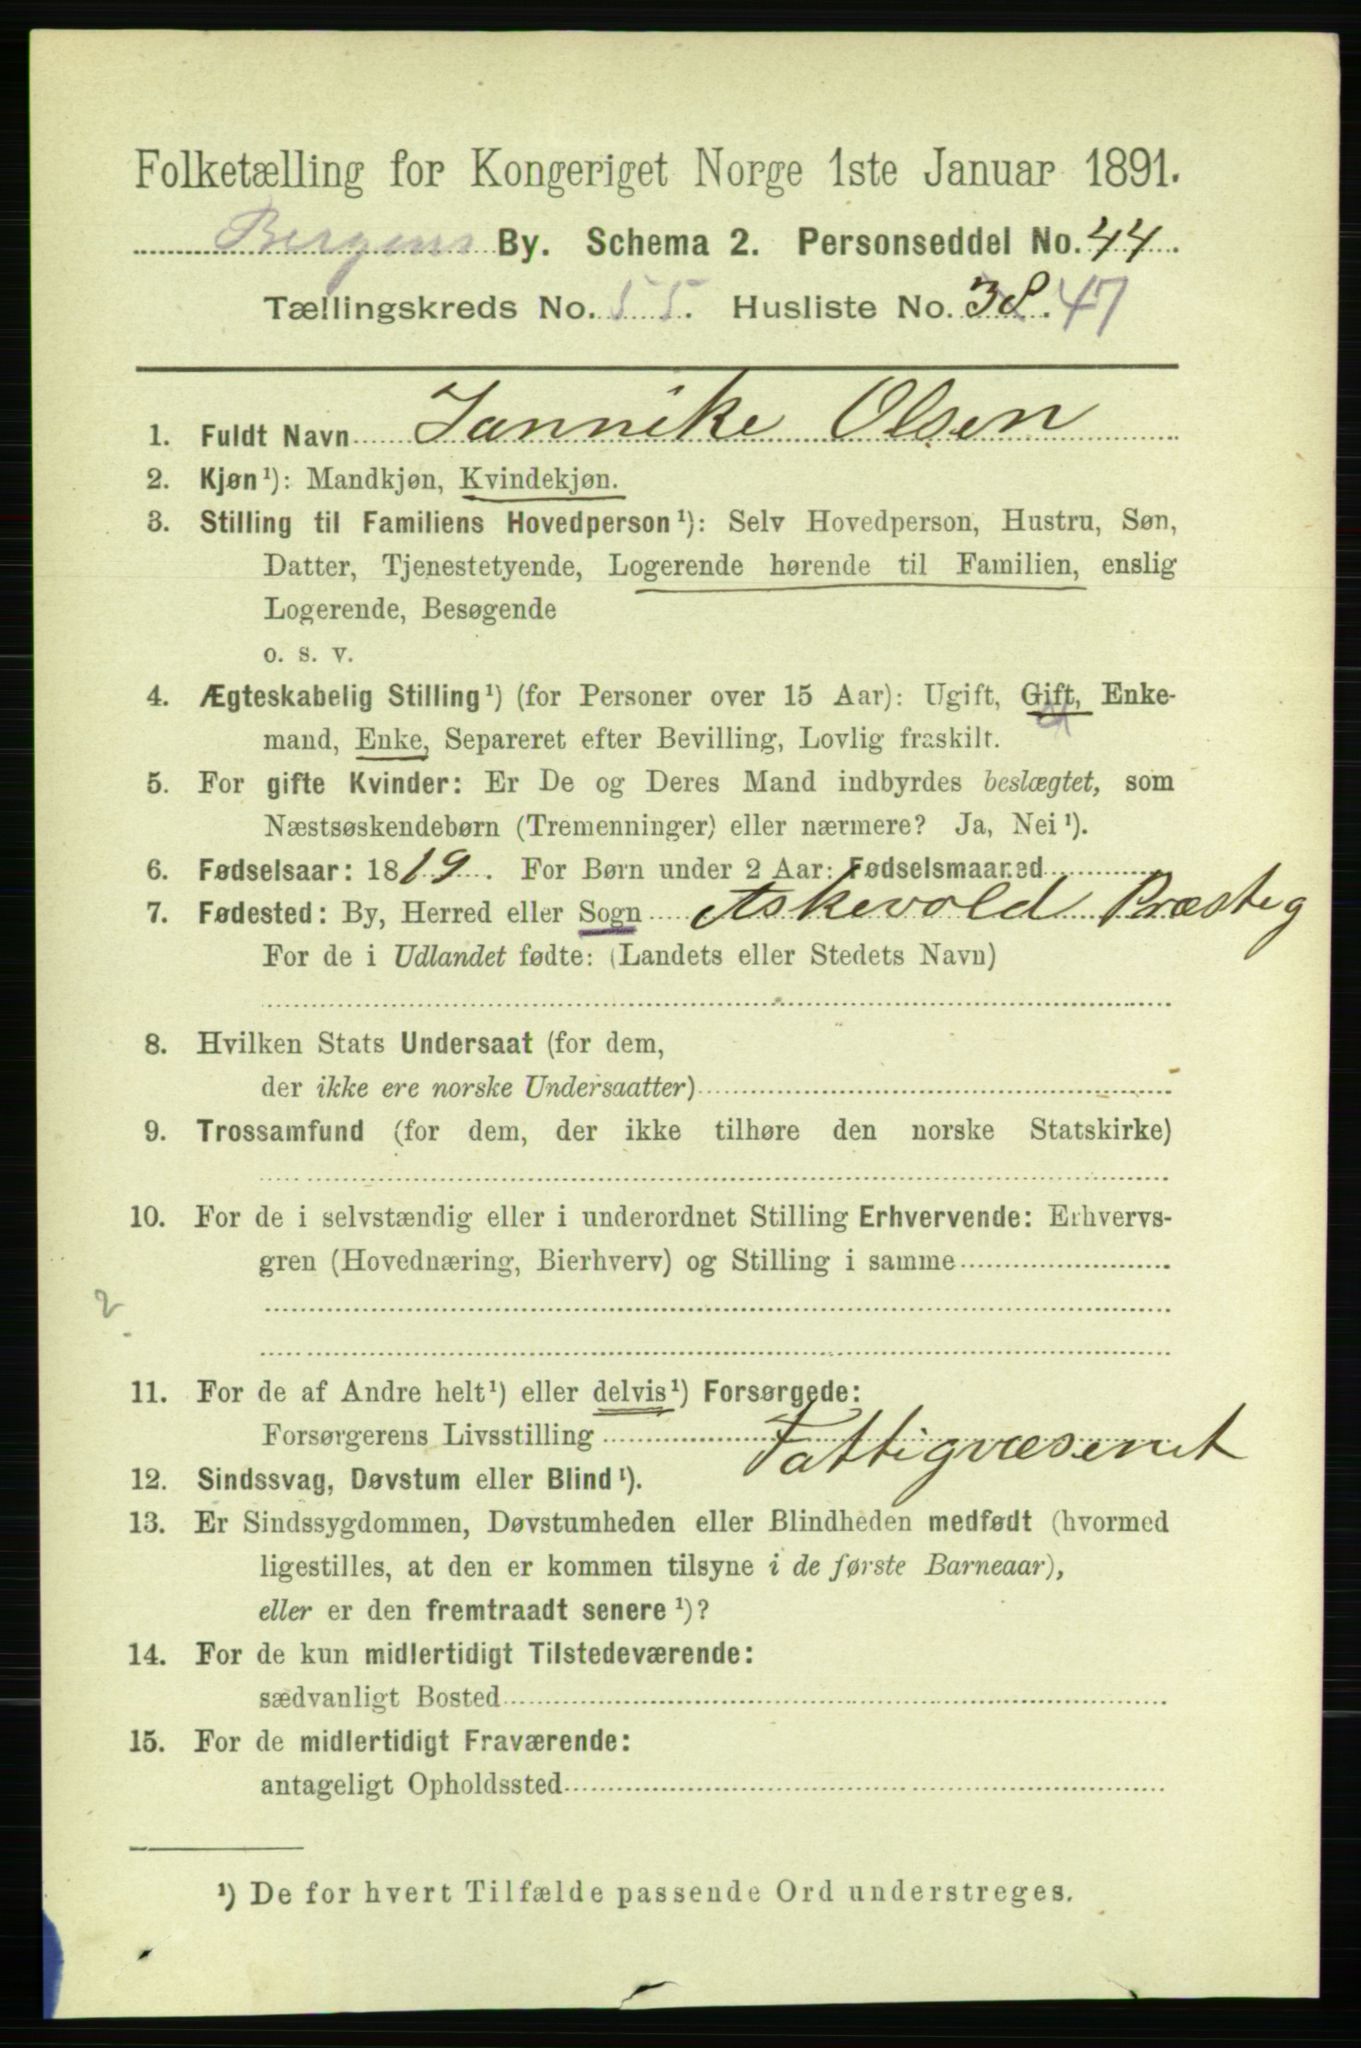 Folketælling for Kongeriget Norge 1ste Januar 1891.
Bergens By. Schema 2. Personseddel No. 44.
Tællingskreds No. 55. Husliste No. 38. 47
1. Fuldt Navn Jannike Olsen
2. Kjøn¹): Mandkjøn, Kvindekjøn.
3. Stilling til Familiens Hovedperson¹): Selv Hovedperson, Hustru, Søn,
Datter, Tjenestetyende, Logerende hørende til Familien, enslig
Logerende, Besøgende
o. s. v.
4. Ægteskabelig Stilling¹) (for Personer over 15 Aar): Ugift, Gift, Enke-
mand, Enke, Separeret efter Bevilling, Lovlig fraskilt.
5. For gifte Kvinder: Er De og Deres Mand indbyrdes beslægtet, som
Næstsøskendebørn (Tremenninger) eller nærmere? Ja, Nei¹).
6. Fødselsaar: 1819. For Børn under 2 Aar: Fødselsmaaned
7. Fødested: By, Herred eller Sogn Askevold Præsteg
For de i Udlandet fødte: (Landets eller Stedets Navn)
8. Hvilken Stats Undersaat (for dem,
der ikke ere norske Undersaatter)
9. Trossamfund (for dem, der ikke tilhøre den norske Statskirke)
10. For de i selvstændig eller i underordnet Stilling Erhvervende: Erhvervs-
gren (Hovednæring, Bierhverv) og Stilling i samme
2
11. For de af Andre helt¹) eller delvis¹) Forsørgede:
Forsørgerens Livsstilling Fattigvæsenet
12. Sindssvag, Døvstum eller Blind¹).
13. Er Sindssygdommen, Døvstumheden eller Blindheden medfødt (hvormed
ligestilles, at den er kommen tilsyne i de første Barneaar),
eller er den fremtraadt senere¹)?
14. For de kun midlertidigt Tilstedeværende:
sædvanligt Bosted
15. For de midlertidigt Fraværende:
antageligt Opholdssted
¹) De for hvert Tilfælde passende Ord understreges.